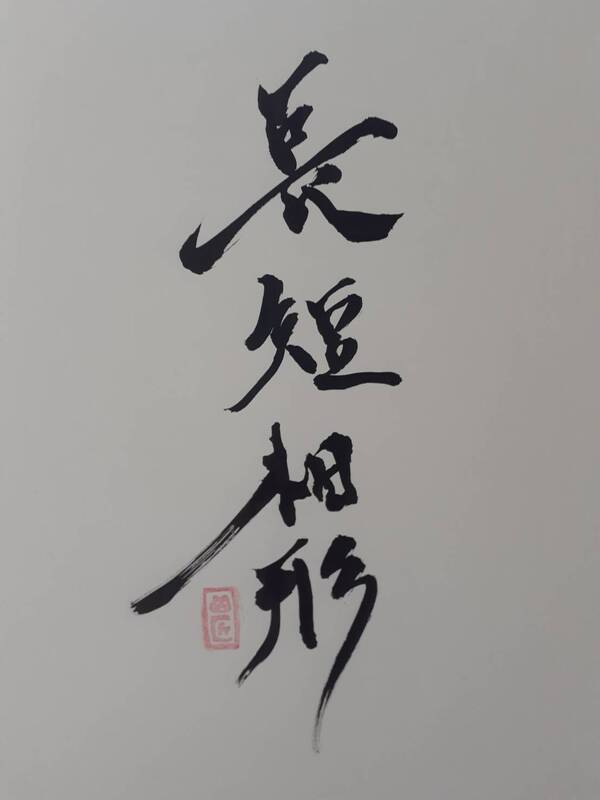 長短相形